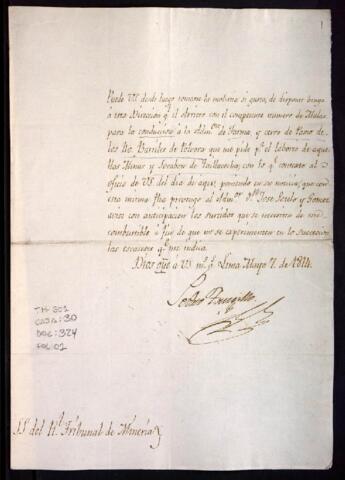 1
Puede VS desde luego tomarse la molestia si gusta, de disponer benga
á esta Direccion qº el Arriero con el competente numero de Mulas
para la conduccion á la Admon de Tarma, y cerro de Pasco de
los 40 Barriles de Polvora que me pide pª el laborio de aque
llas Minas y Socabon de con lo qº contexto al
oficio de VS. del dia de aquí, poniendo en su noticia, que con
esta misma fha prevengo al Admor Dn Jose Sotelo y
avise con anticipacion los surtidos que se necesiten de este
combustible á fin de que no se experimenten en lo succesivo
las escaseces qº me indica.
Dios gue á VS ms as Lima, Mayo 7 de 1814.
Pedro Truxillo
TM-801
CAJA: 30
DOC: 324
FOL: 01
SS. del Rl. Tribunal de Mineria